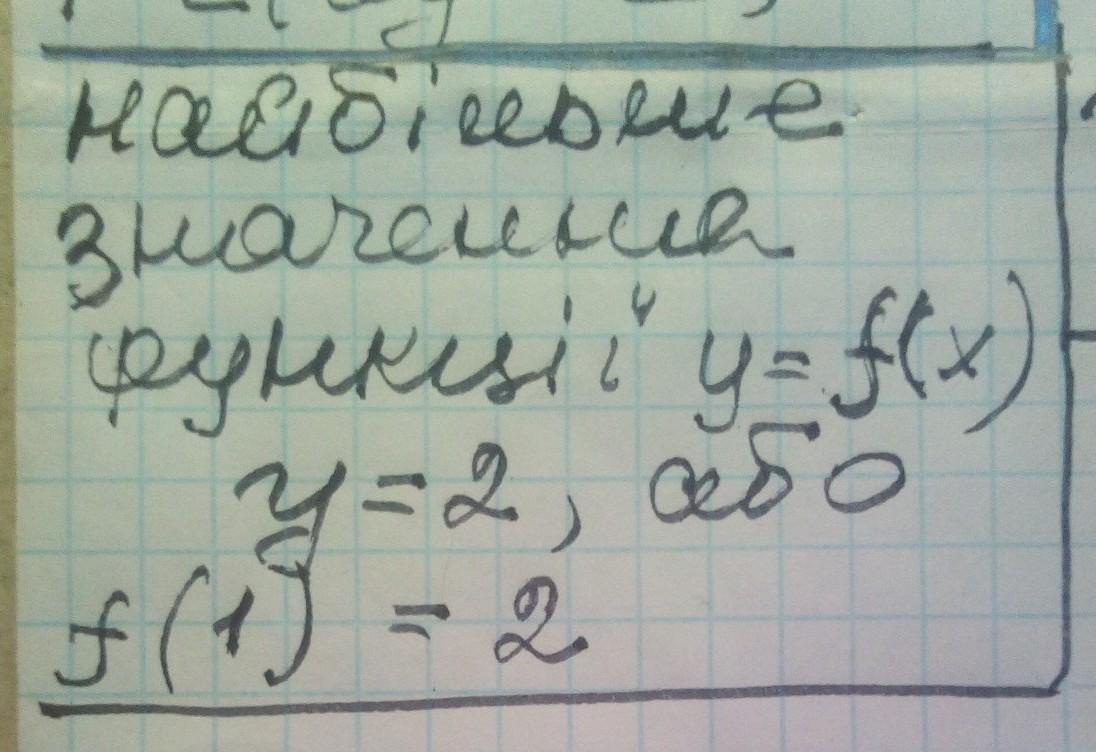 найбільше
значення
функції y = f(x)
y = 2, або
f(1) = 2